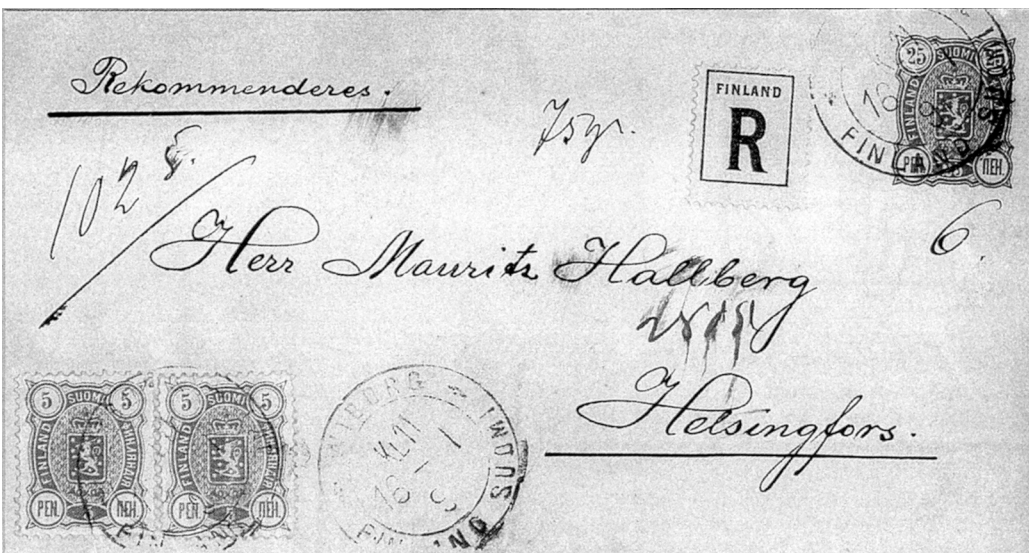 Rekommenderes.
75 gr.
FINLAND
R
25 SUOMI
FINLAND
PEN. ПЕН.
FINLAND
102
6.
Herr Mauritz Hallberg
Helsingfors.
5 SUOMI 5
FINLAND
PEN. ПЕН.
5 SUOMI 5
FINLAND
PEN. ПЕН.
SUOMI
FINLAND